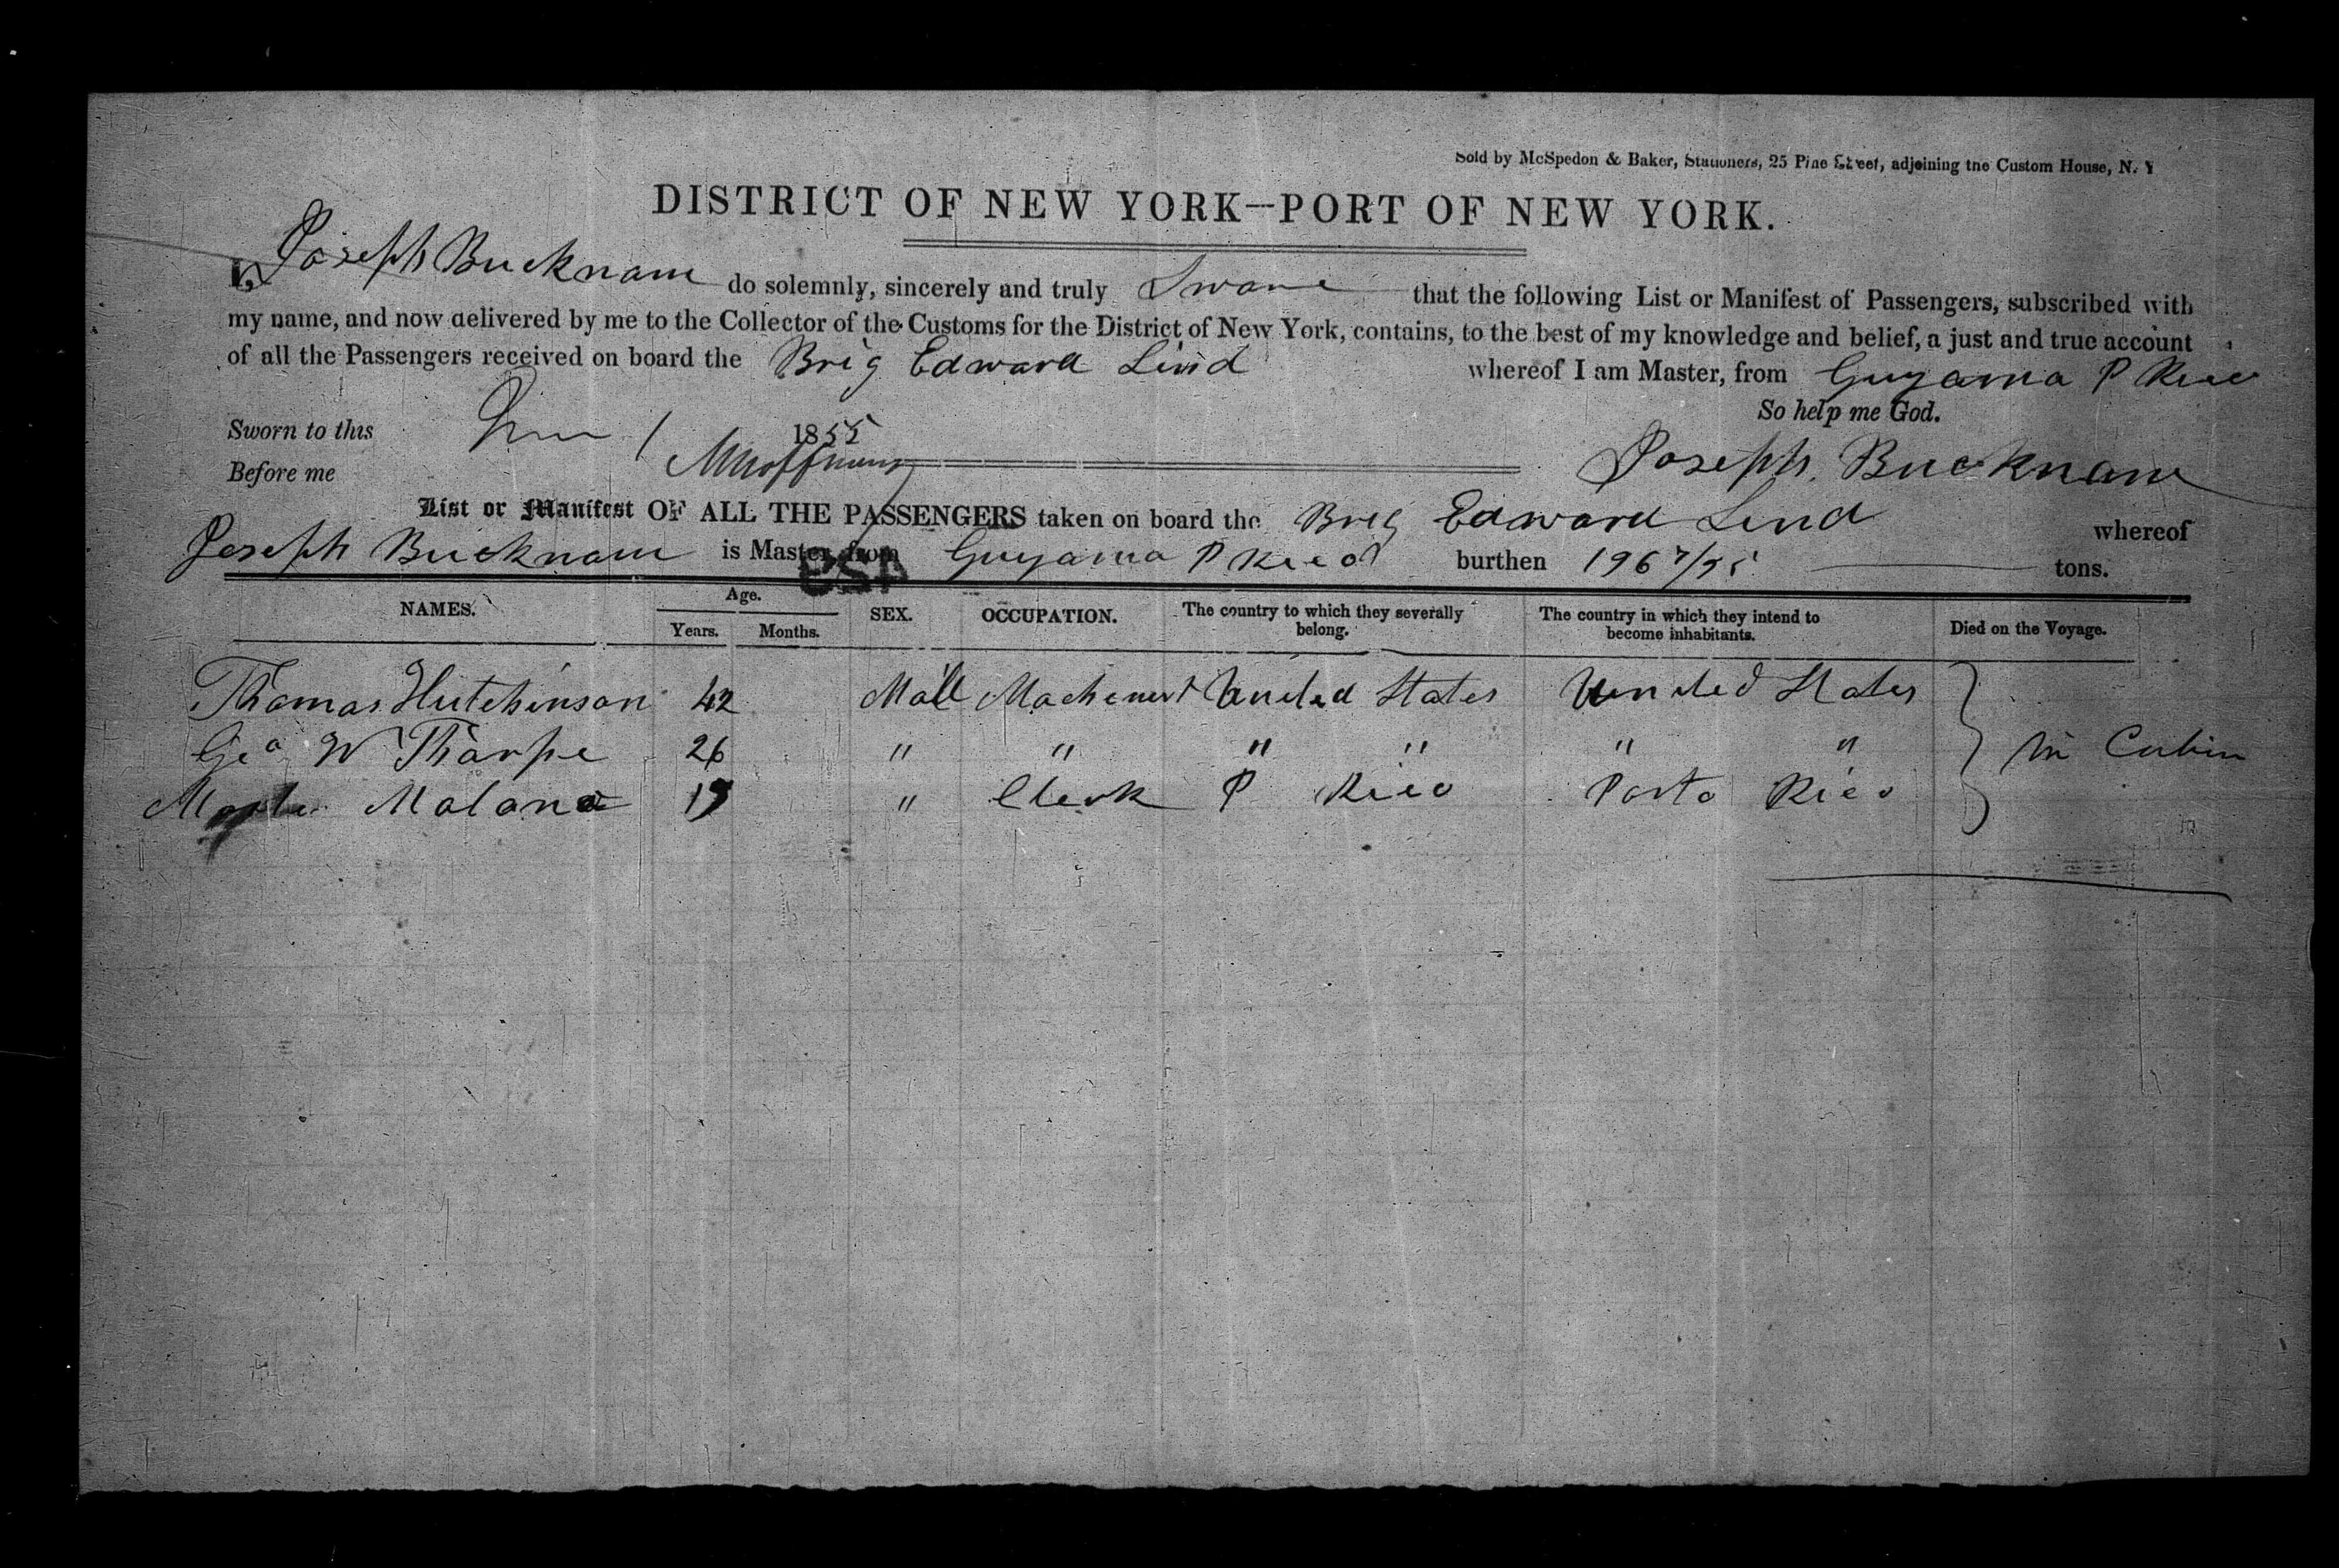 Sold by McSpedon & Baker, Stationers, 25 Pine Street, adjoining the Custom House, N. Y
DISTRICT OF NEW YORK—PORT OF NEW YORK.
I, Joseph Bucknam do solemnly, sincerely and truly Sware that the following List or Manifest of Passengers, subscribed with
my name, and now delivered by me to the Collector of the Customs for the District of New York, contains, to the best of my knowledge and belief, a just and true account
of all the Passengers received on board the Brig Edward Lind whereof I am Master, from Guyama P Rico
So help me God.
Sworn to this 1 1855
Before me Joseph Bucknam
List or Manifest OF ALL THE PASSENGERS taken on board the Brig Edward Lind whereof
Joseph Bucknam is Master, from Guyama P Rico burthen 196 tons.
NAMES. Age. Years. Months. SEX. OCCUPATION. The country to which they severally belong. The country in which they intend to become inhabitants. Died on the Voyage.
Thomas Hutchinson 42 Male Machenest United States United States
Geo W Tharpe 26 " " " " " " in Cabin
Malana 19 " Clerk P Rico Porto Rico